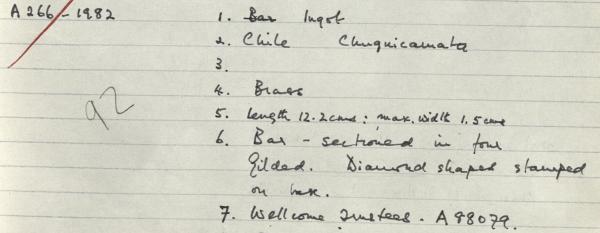 A 266 - 1982
1. Bar Ingot
2. Chile Chuquicamata
3.
4. Brass
5. Length 12.2cms : max. width 1.5cms
6. Bar - sectioned in four
Gilded. Diamond shapes stamped
on
7. Wellcome Trustees. A 98079.
92